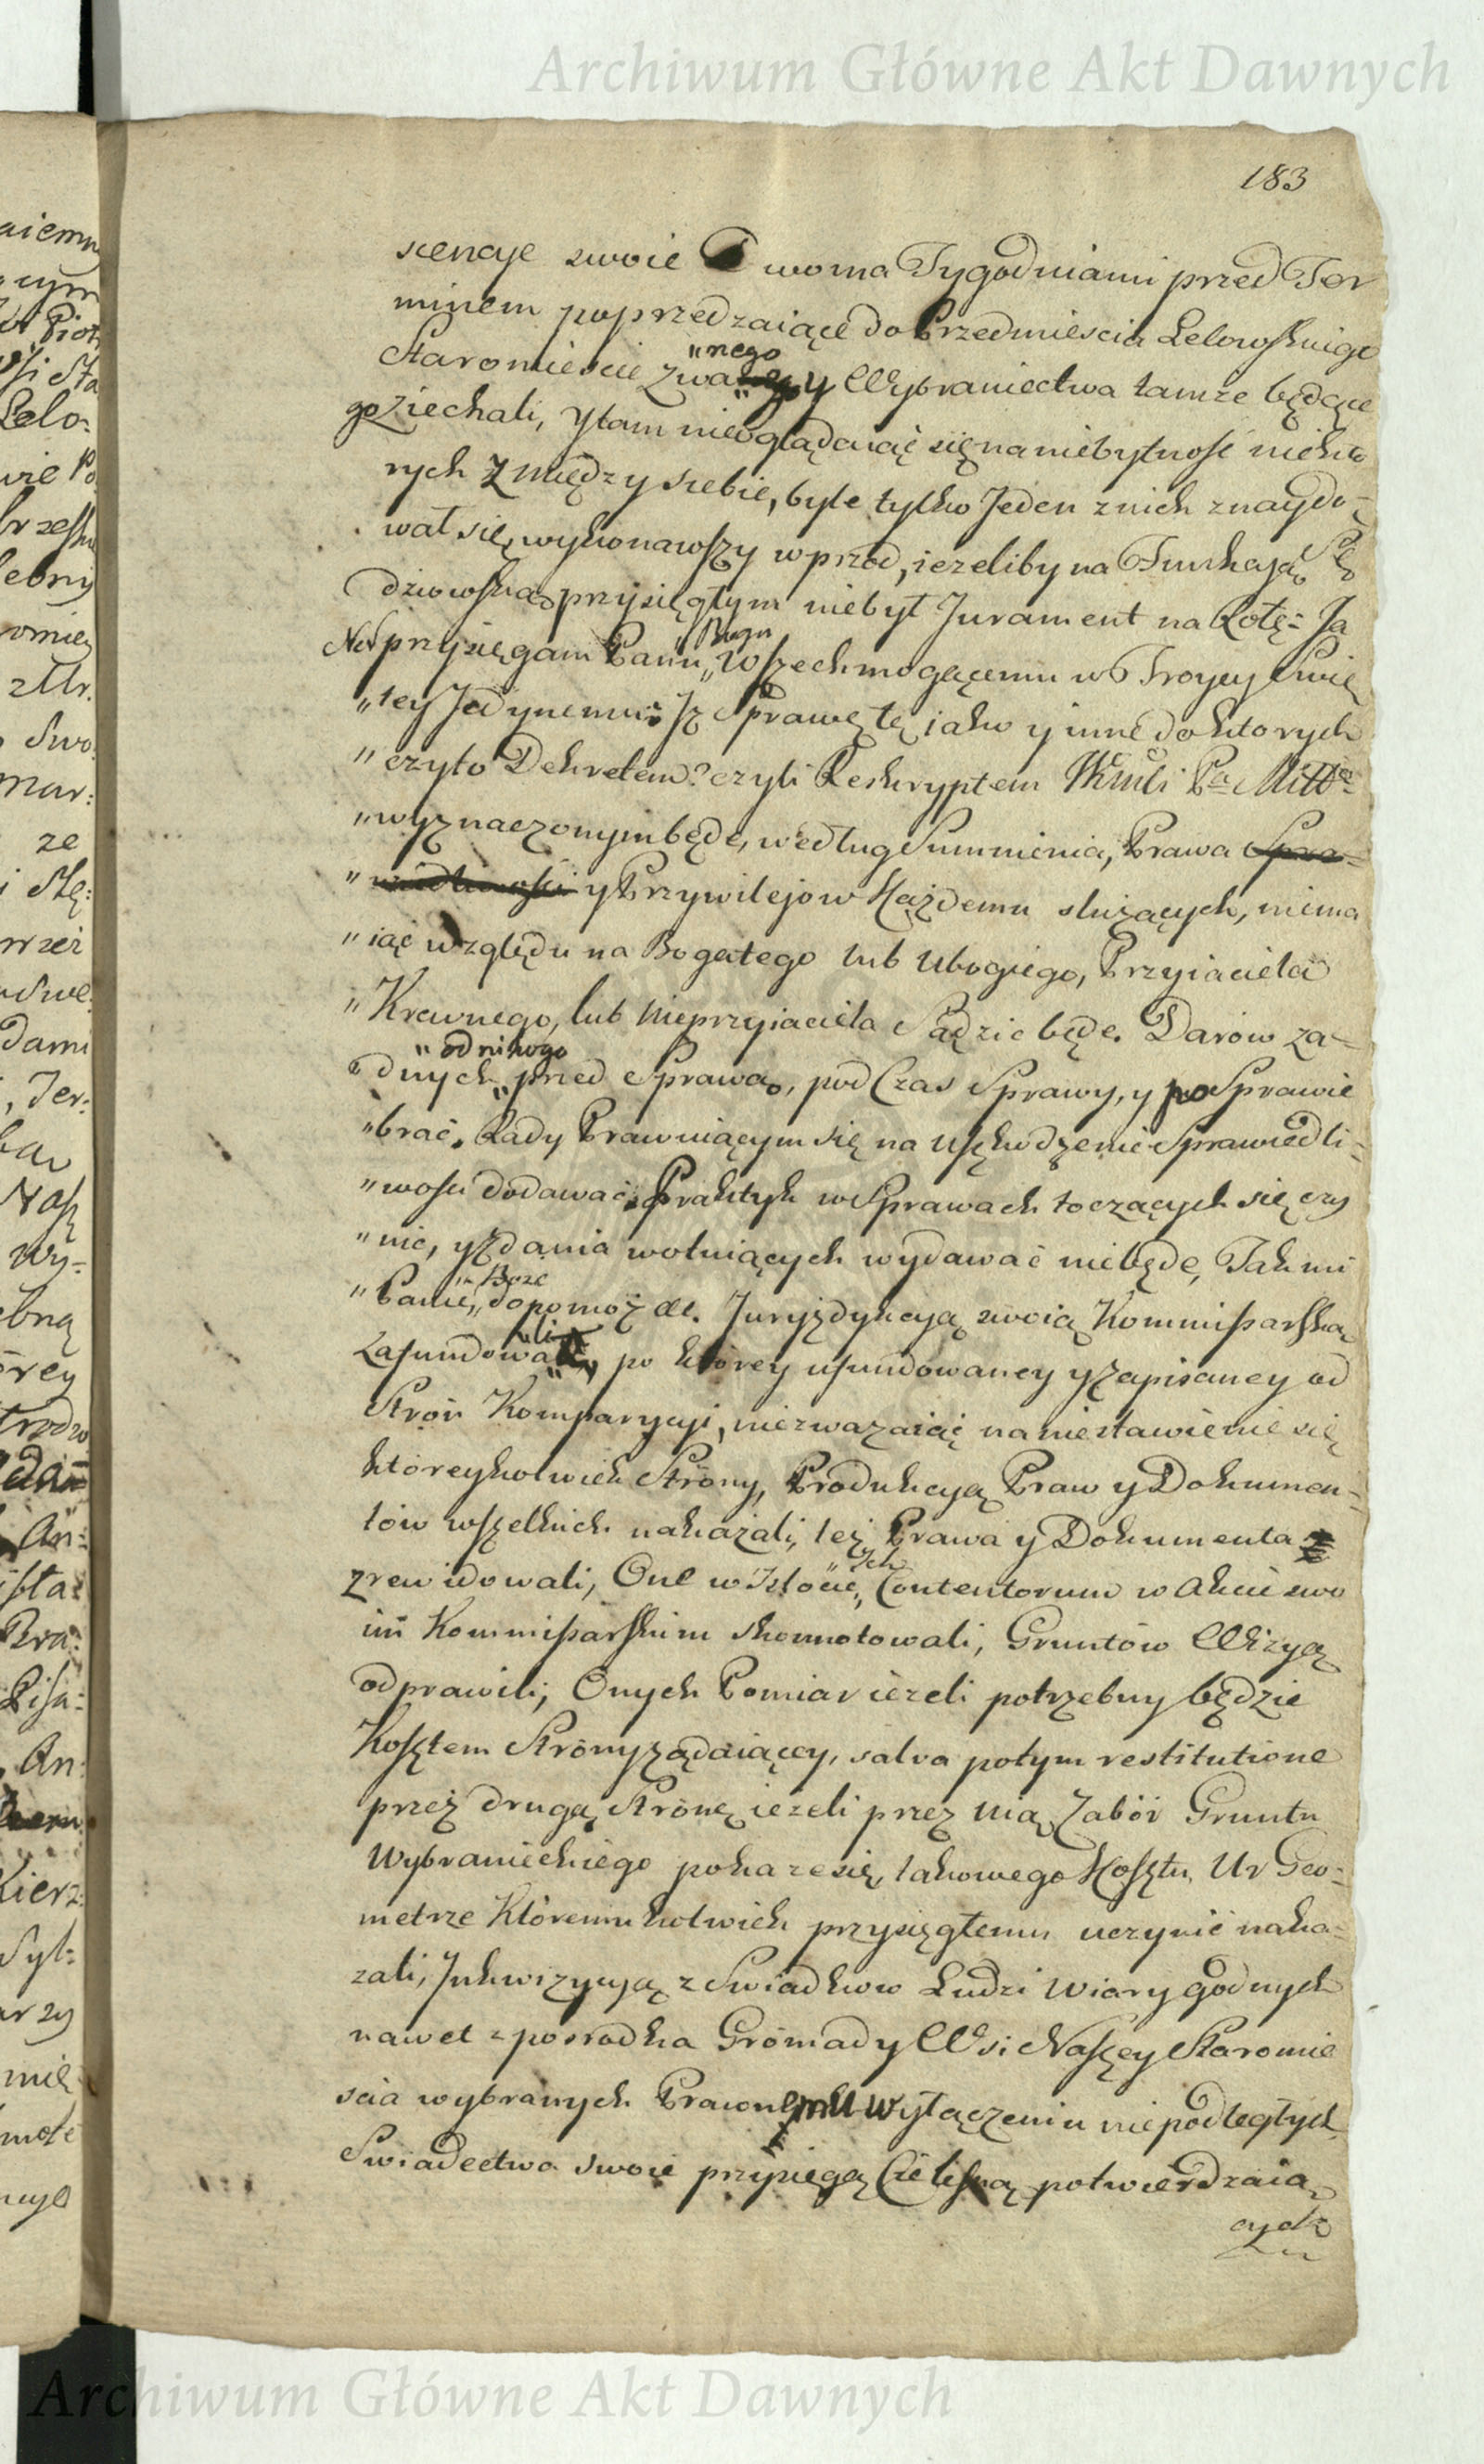 Archiwum Główne Akt Dawnych
183
scencye swoie Dwoma Tygodniami przed Ter
minem poprzedzaiące do Przedmiescia Lelowskiego
Staromiescie zwa"nego y Wybraniectwa tamże będące
go ziechali, y tam nieoglądaiąc się na niebytność niekto
rych z między siebie, byle tylko Jeden z nich znaydo-
wał się, wykonawszy wprzod, ieżeliby na Funkcyą Sę
dziowską przysięgłym niebył Jurament na Rotę: Ja
NN przysięgam Panu "Bogu Wszechmogącemu w Troycy Swię
"tey Jedynemu; Iż Sprawę tę iako y inne do ktorych
"czyto Dekretem czyli Reskryptem
"wyznaczonym będe, według Summienia, Prawa Spra-
"wiedliwości y Przywilejow Każdemu służących, niema
"iąc względu na Bogatego lub Ubogiego, Przyiaciela
"Krewnego, lub Nieprzyiaciela Sądzic będe. Darow ża-
"dnych "od nikogo przed Sprawą, pod Czas Sprawy, y po Sprawie
"brać, Rady Prawniącym się na Uszkodzenie Sprawiedli-
"wości dodawać, Praktyk w Sprawach toczących się czy
"nic, y Zdania wotuiących wydawać niebędę, Tak mi
"Panie, "Boże dopomoż &c. Juryzdykcyą swoią Kommissarską
Zafundowali, po ktorey ufundowaney y zapisaney od
Stron Komparycyi, niezważaiąc na niestawienie się
ktoreykolwiek Strony, Produkcyą Praw y Dokumen-
tow wszelkich nakazali, też Prawa y Dokumenta
zrewidowali, One w Istocie "Ich Contentorum w Akcie swo
im Kommissarskim skonnotowali, Gruntow Wizyą
odprawili, Onych Pomiar ieżeli potrzebny będzie
Kosztem Strony żądaiącey, salva potym restitutione
przez drugą Stronę ieżeli przez nią Zabor Gruntu
Wybranieckiego pokaze się, takowego Kosztu, Ur Geo-
metrze Ktoremukolwiek przysięgłemu uczynić naka-
zali, Inkwizycyą z Swiadkow Ludzi Wiary godnych
nawet z posrodka Gromady Wsi Naszey Staromie
scia wybranych Prawnemu wyłączeniu niepodległych
Swiadectwa swoie przysięgą Cielesną potwierdzaią
cych
Archiwum Główne Akt Dawnych